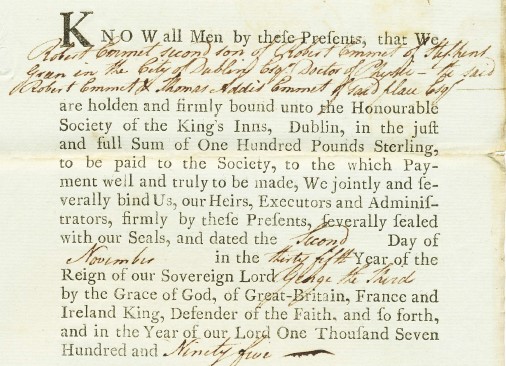 KNOW all Men by theſe Preſents, that We
Robert Emmet second son of Robert Emmet of Stephens
Green in the City of Dublin Esqr Doctor of Physic – the said
Robert Emmet & Thomas Addis Emmet of said place Esqr
are holden and firmly bound unto the Honourable
Society of the King's Inns, Dublin, in the juſt
and full Sum of One Hundred Pounds Sterling,
to be paid to the Society, to the which Pay-
ment well and truly to be made, We jointly and ſe-
verally bind Us, our Heirs, Executors and Adminiſ-
trators, firmly by theſe Preſents, ſeverally ſealed
with our Seals, and dated the Second Day of
November in the thirty fifth Year of the
Reign of our Sovereign Lord George the Third
by the Grace of God, of Great-Britain, France and
Ireland King, Defender of the Faith, and ſo forth,
and in the Year of our Lord One Thouſand Seven
Hundred and Ninety five —